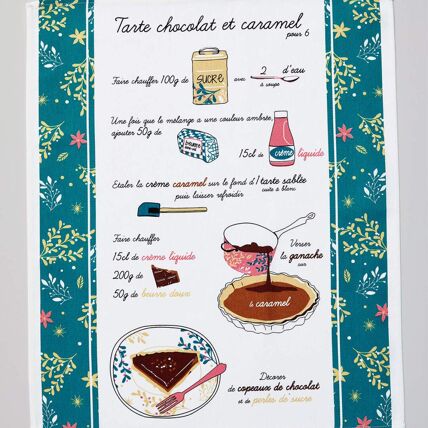 Tarte chocolat et caramel
pour 6
Faire chauffer 100g de SUCRE avec 2 d'eau
à soupe
Une fois que le mélange a une couleur ambrée,
ajouter 50g de beurre
15cl de crème liquide
Etaler la crème caramel sur le fond d'1 tarte sablée
cuite à blanc
puis laisser refroidir
Faire chauffer
15cl de crème liquide
200g de
50g de beurre doux
Verser
la ganache
sur
le caramel
Décorer
de copeaux de chocolat
et de perles de sucre